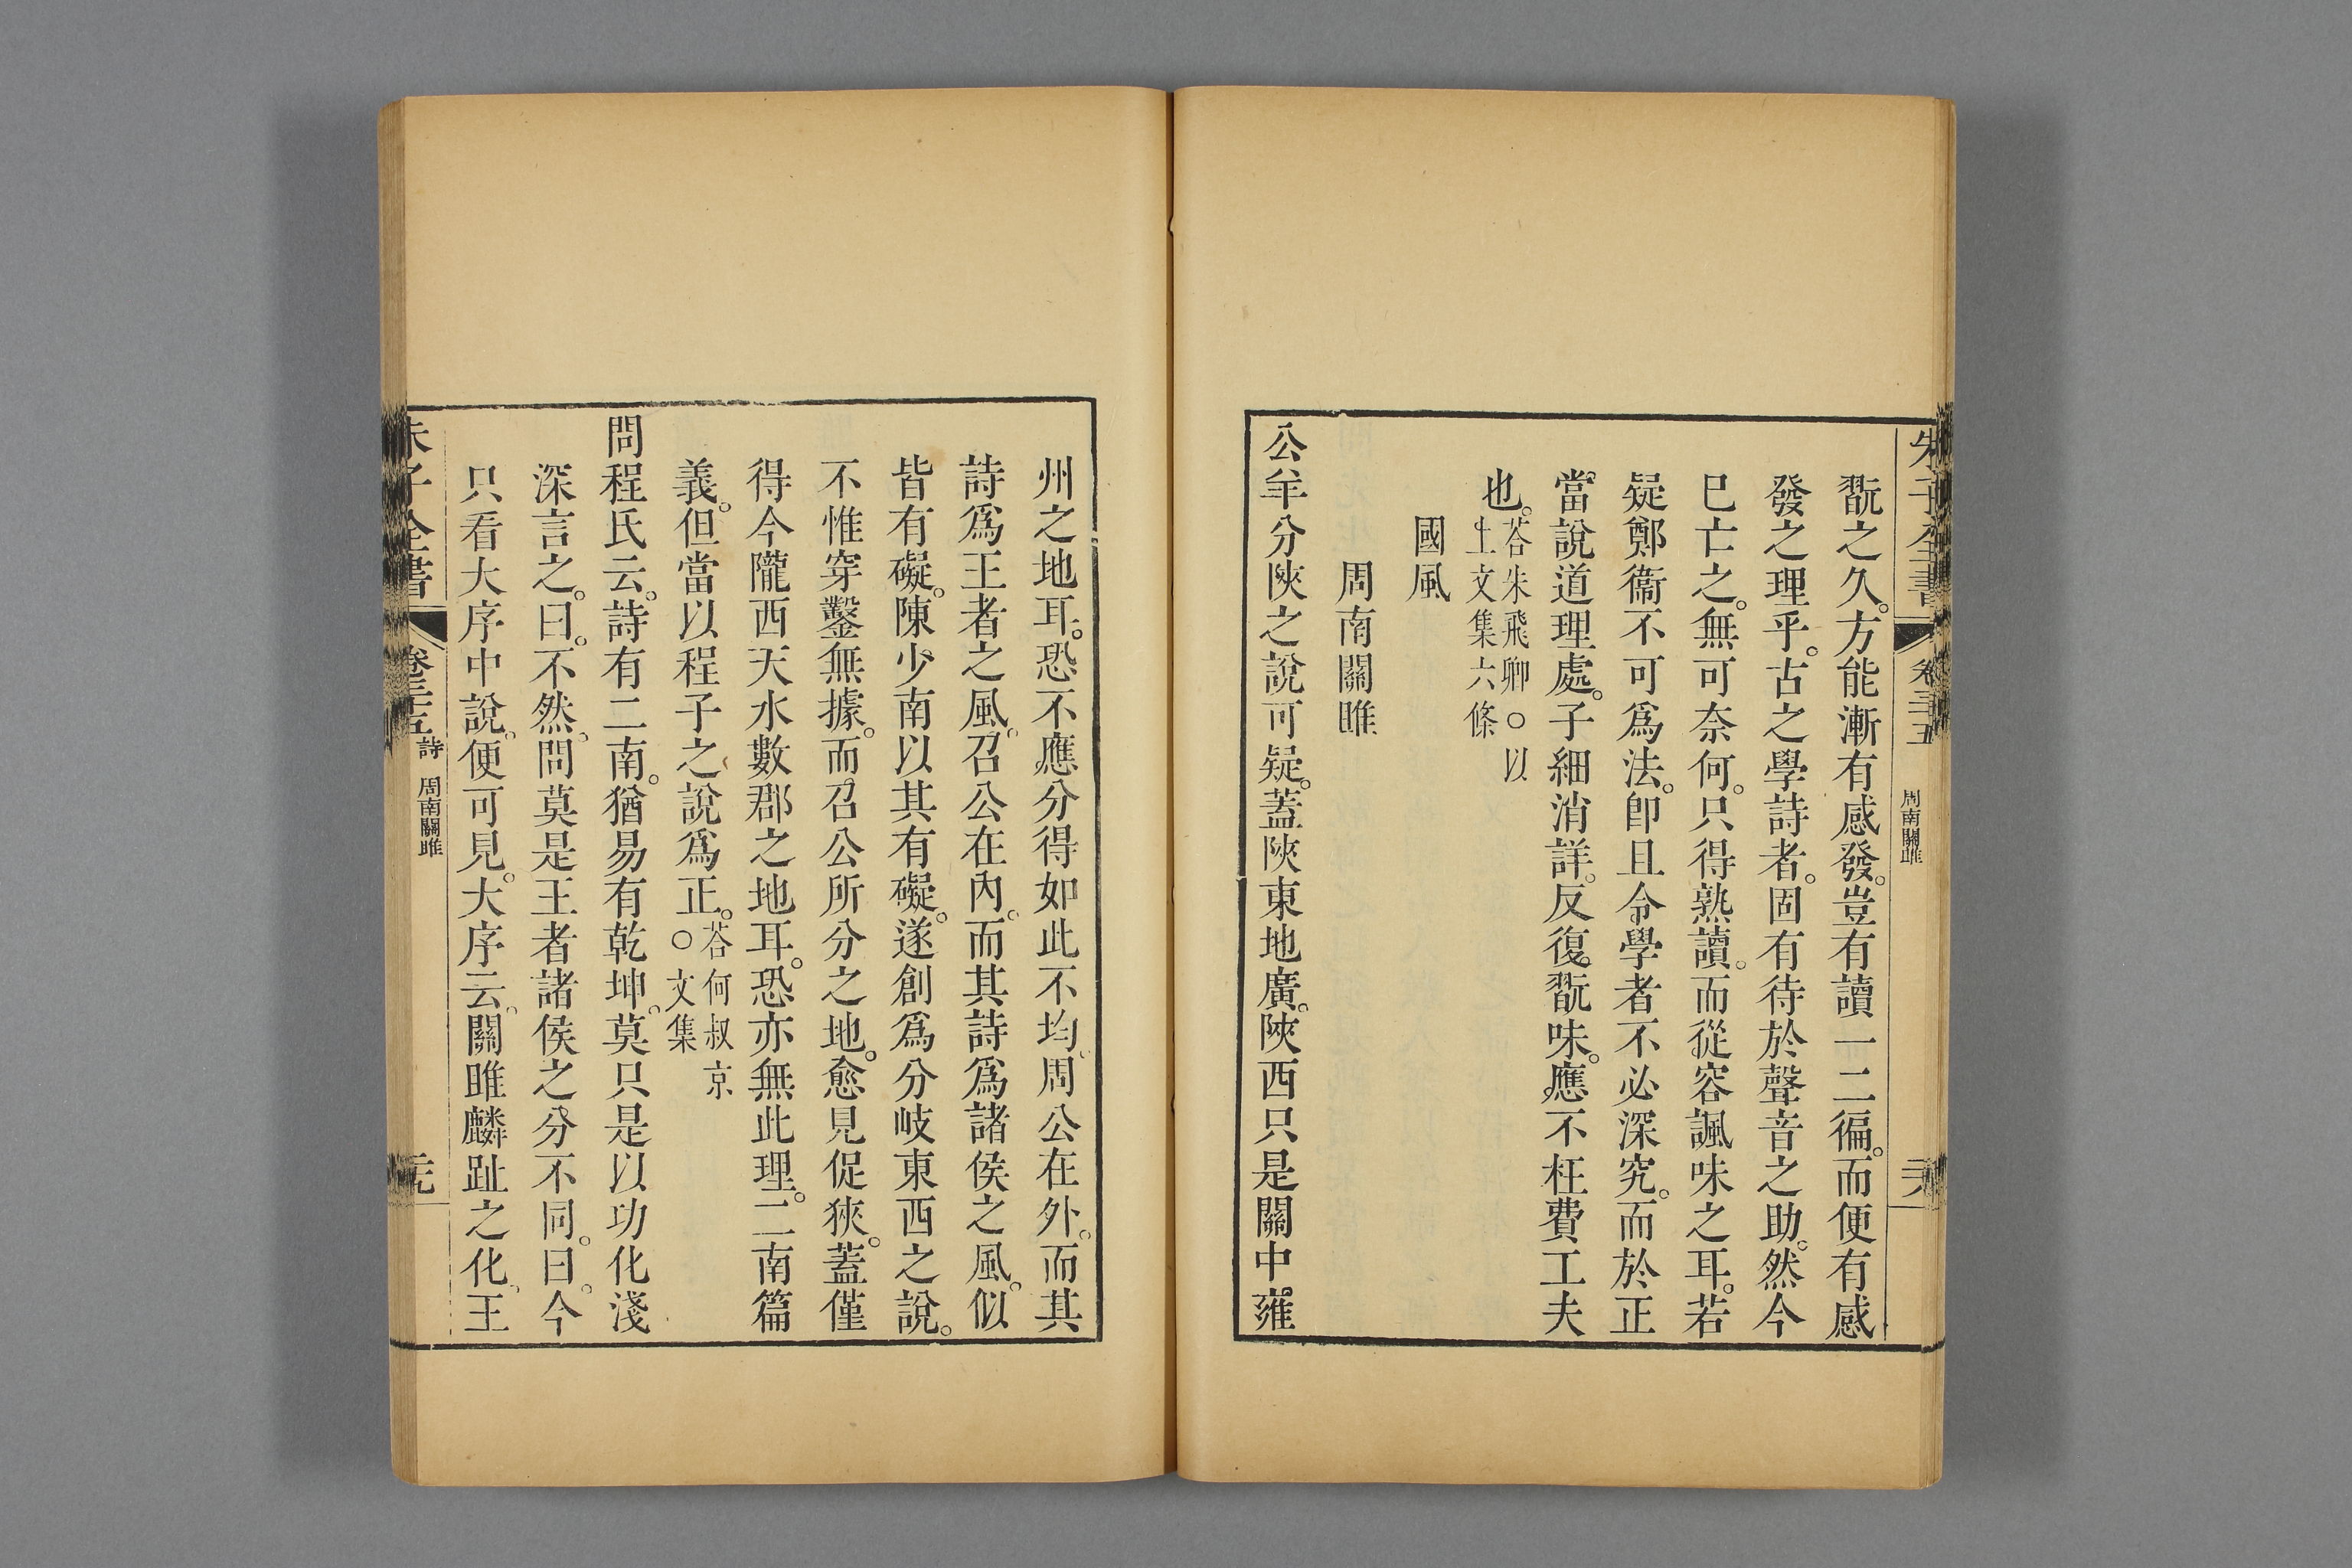 朱子全書 卷三十五 周南關雎
翫之久。方能漸有感發。豈有讀一二徧。而便有感
發之理乎。古之學詩者。固有待於聲音之助。然今
已亡之。無可奈何。只得熟讀。而從容諷味之耳。若
疑鄭衞不可爲法。卽且令學者不必深究。而於正
當說道理處。子細消詳。反復翫味。應不枉費工夫
也。答朱飛卿○以
上文集六條
國風
周南關雎
公羊分陝之說可疑。蓋陝東地廣。陝西只是關中雍
州之地耳。恐不應分得如此不均。周公在外。而其
詩爲王者之風。召公在內。而其詩爲諸侯之風。似
皆有礙。陳少南以其有礙。遂創爲分岐東西之說。
不惟穿鑿無據。而召公所分之地。愈見促狹。蓋僅
得今隴西天水數郡之地耳。恐亦無此理。二南篇
義。但當以程子之說爲正。答何叔京
○文集
問程氏云。詩有二南。猶易有乾坤。莫只是以功化淺
深言之。曰。不然。問莫是王者諸侯之分不同。曰。今
只看大序中說。便可見。大序云。關雎麟趾之化。王
朱子全書 卷三十五 詩 周南關雎